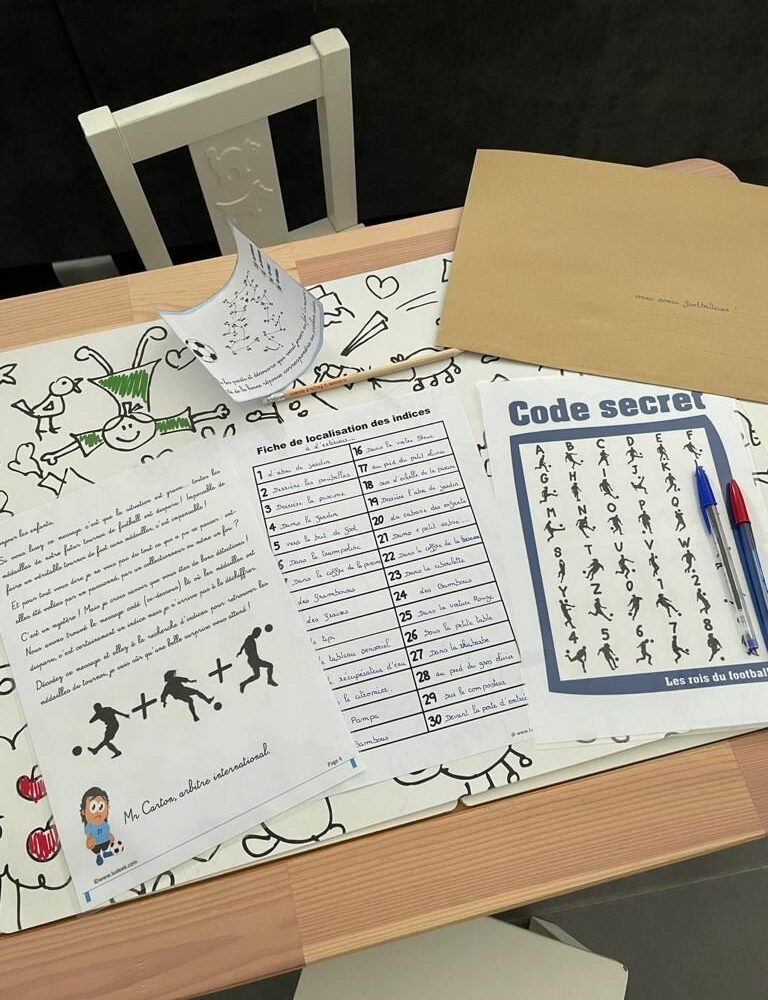 mes amis footballeurs !
Code secret
A B C D E F
G H I J K
M N O P Q
S T U V W
Y Z 0 1 2
4 5 6 7 8
Les rois du football
Fiche de localisation des indices
à l'extérieur...
1 L'abri de jardin
2 Derrière les poubelles
3 Derrière la piscine
4 Dans le jardin
5 vers le but de foot
Dans le trampoline
Dans le coffre de la
des framboises
tipi
tableau sensoriel
récupérateur d'eau
le citernier
Pampa
Bambous
16 Dans la valise Bleue
17 au pied du petit olivier
18 sur l'échelle de la piscine
19 Derrière l'abri de jardin
20 La cabane des enfants
21 Dans 1 petit arbre...
22 Dans le coffre de la
23 Dans la ciboulette
24 des Bambous
25 Dans la voiture Rouge
26 Sous la petite table
27 Dans la rhubarbe
28 au pied du gros olivier
29 sur le composteur
30 Devant la porte d'entrée
les enfants,
Si vous lisez ce message c'est que la situation est grave: toutes les
médailles de notre futur tournoi de football ont disparu ! Impossible de
faire un véritable tournoi de foot sans médailles, c'est impossible !
Et pour tout vous dire je ne sais pas du tout ce qui a pu se passer : ont-
elles été volées par un passionné, par un collectionneur ou même un fan ?
C'est un mystère ! Mais je crois savoir que vous êtes de bons détectives !
Nous avons trouvé le message codé (ci-dessous) là où les médailles ont
disparu, c'est certainement un indice mais je n'arrive pas à le déchiffrer.
Décodez ce message et allez à la recherche d'indices pour retrouver les
médailles du tournoi, je suis sûr qu'une belle surprise vous attend !
+ +
Mr Carton, arbitre international.
Page 4
21
©www.ludeek.com